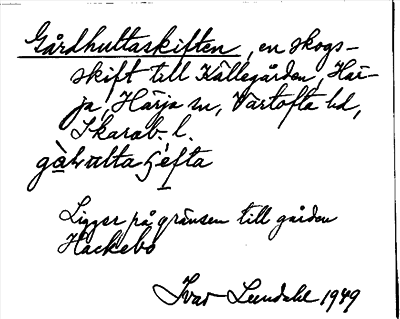 Gårdhultaskiften, en skogs-
skift till Källegården, Här-
ja, Härja sn, Vartofta hd,
Skarab. l.
Ligger på gränsen till gården
Hackebo
Ivar Lundahl 1949